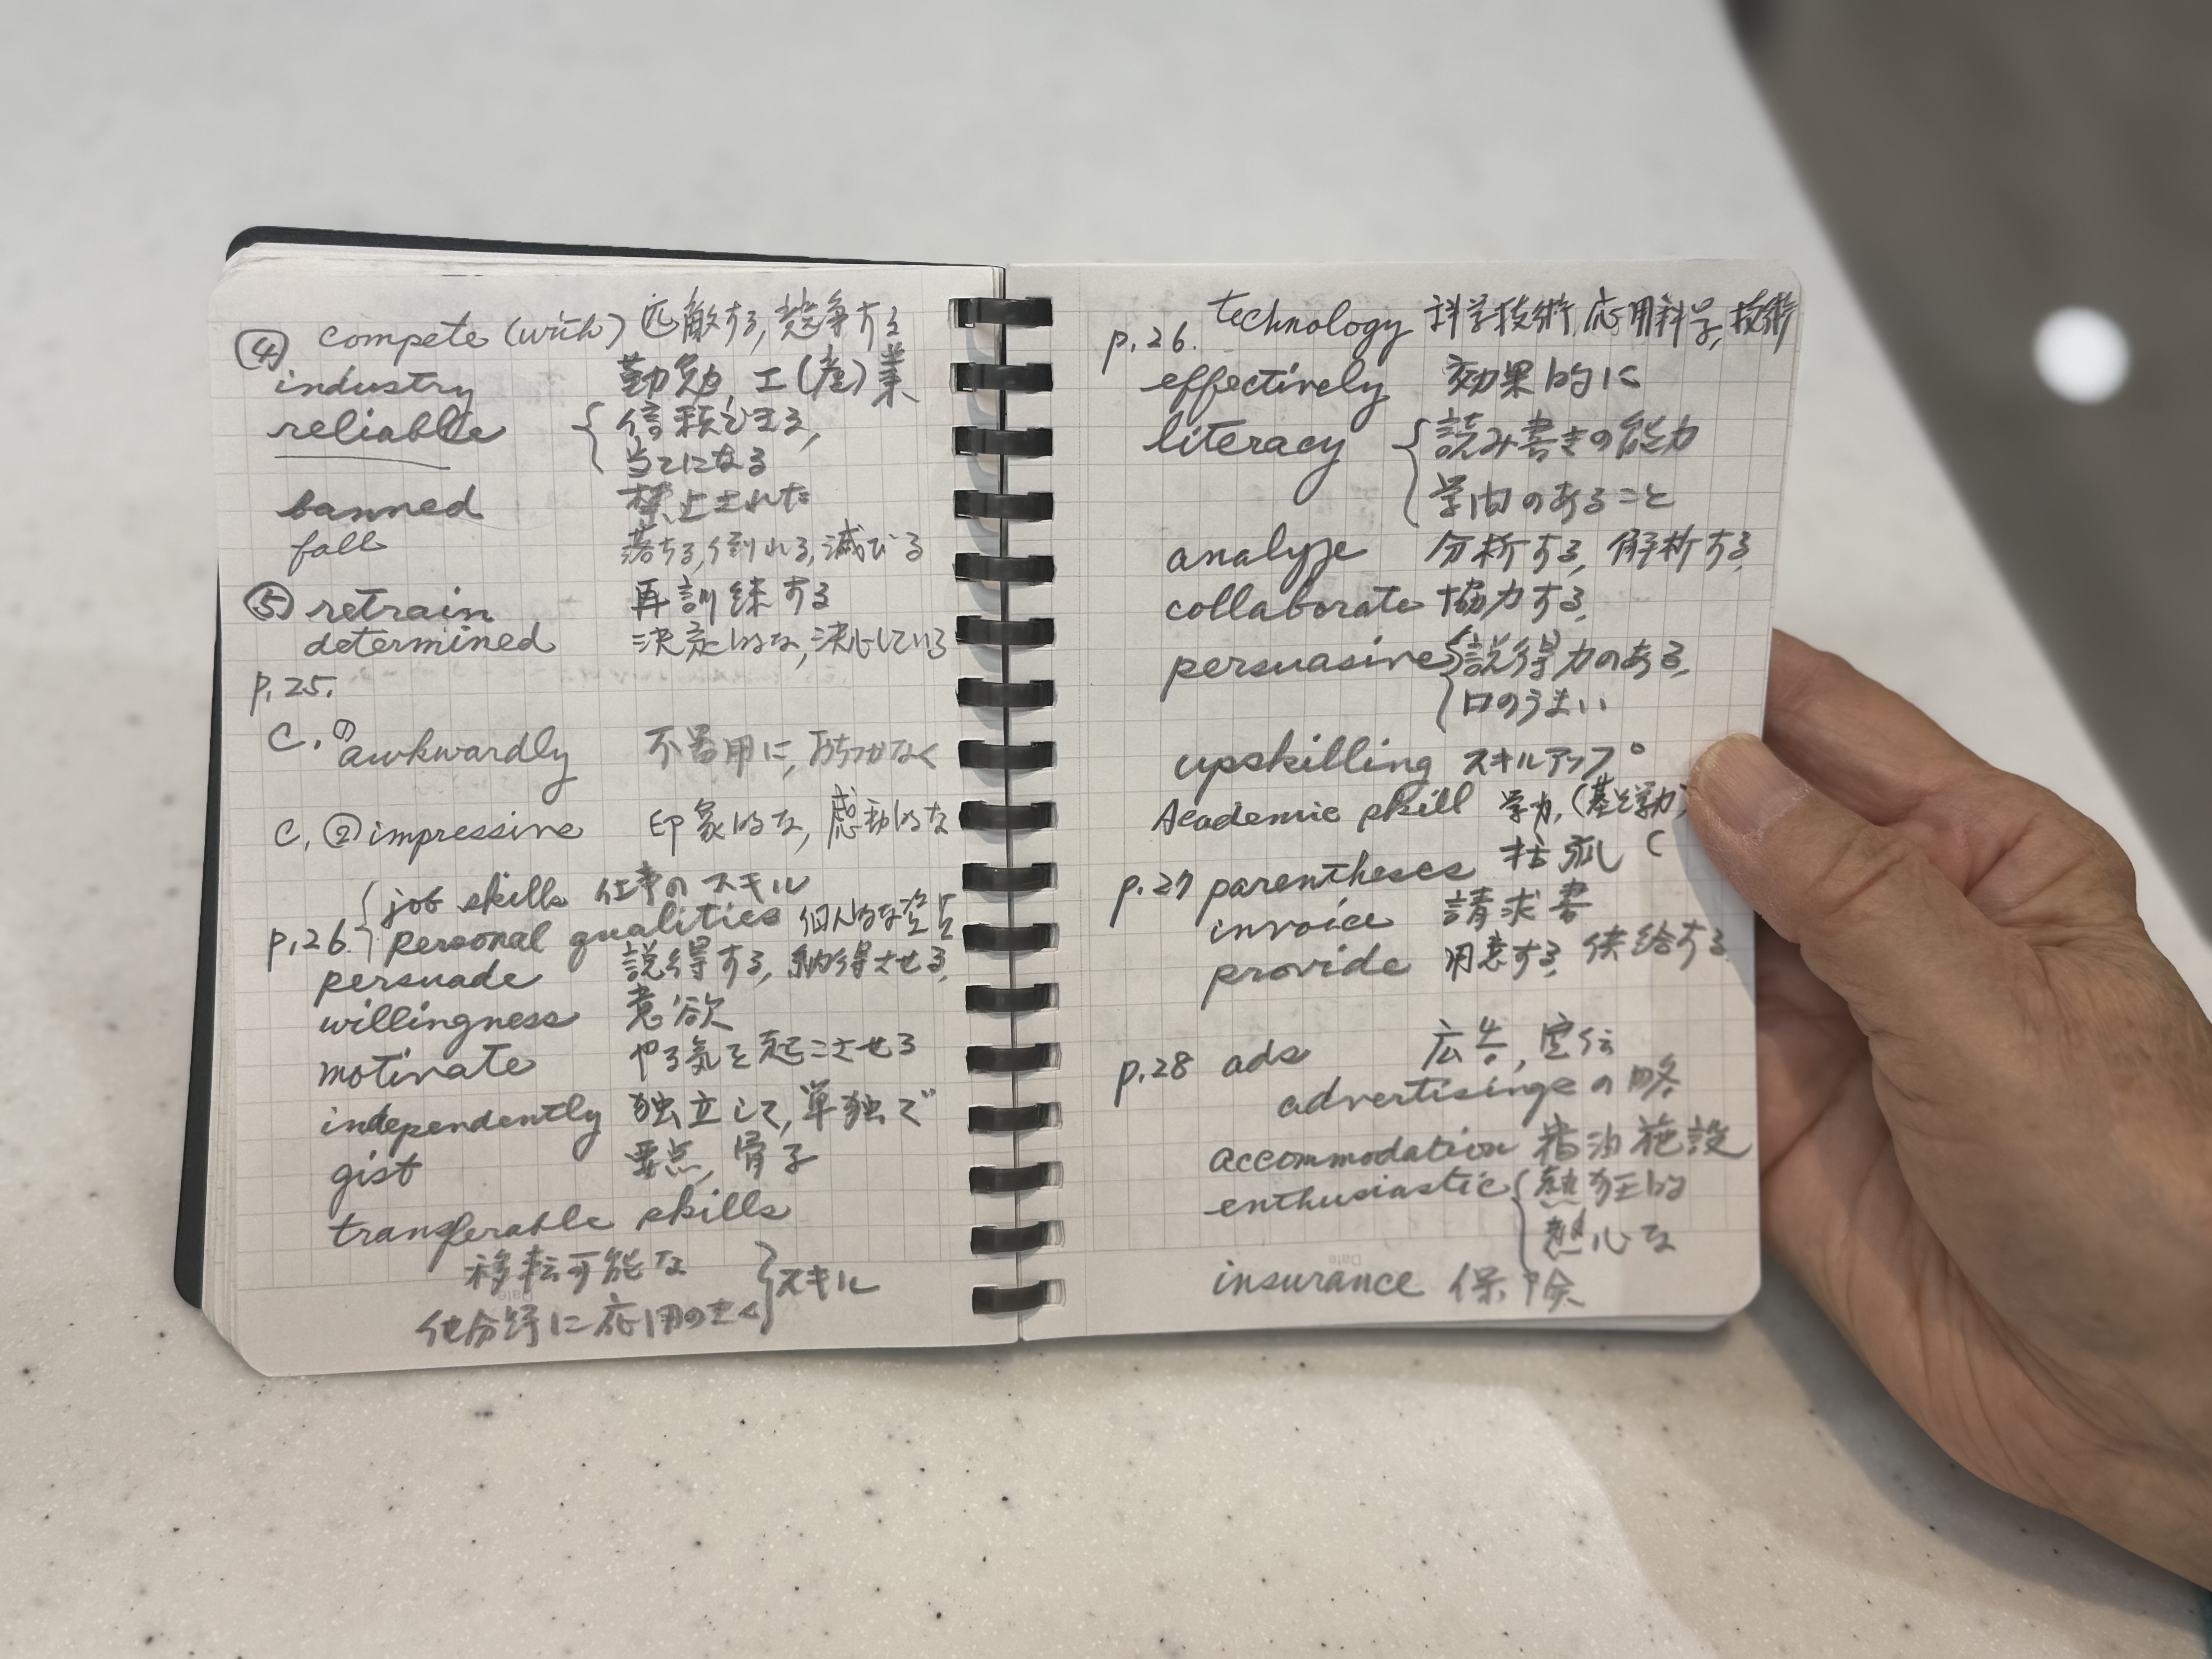 ④ compete (with) 匹敵する, 競争する
industry 勤勉, 工(産)業
reliable { 信頼できる,
当てになる
banned 禁止された
fall 落ちる, 倒れる, 滅びる
⑤ retrain 再訓練する
determined 決定的な, 決心している
p.25.
C. ① awkwardly 不器用に, ぎこちなく
C. ② impressive 印象的な, 感動的な
job skills 仕事のスキル
p.26. { personal qualities 個人的な
persuade 説得する, 納得させる,
willingness 意欲
motivate やる気を起こさせる
independently 独立して, 単独で
gist 要点, 骨子
transferable skills
移転可能な
他分野に応用のきく } スキル
p.26. technology 科学技術, 応用科学, 技術
effectively 効果的に
literacy { 読み書きの能力
学問のあること
analyze 分析する, 解析する
collaborate 協力する,
persuasive { 説得力のある,
口のうまい
upskilling スキルアップ
Academic skill 学力, (基礎学力)
p.27 parentheses 括弧 (
invoice 請求書
provide 用意する, 供給する
p.28 ads 広告, 宣伝
advertisingの略
accommodation 宿泊施設
enthusiastic { 熱狂的
熱心な
insurance 保険